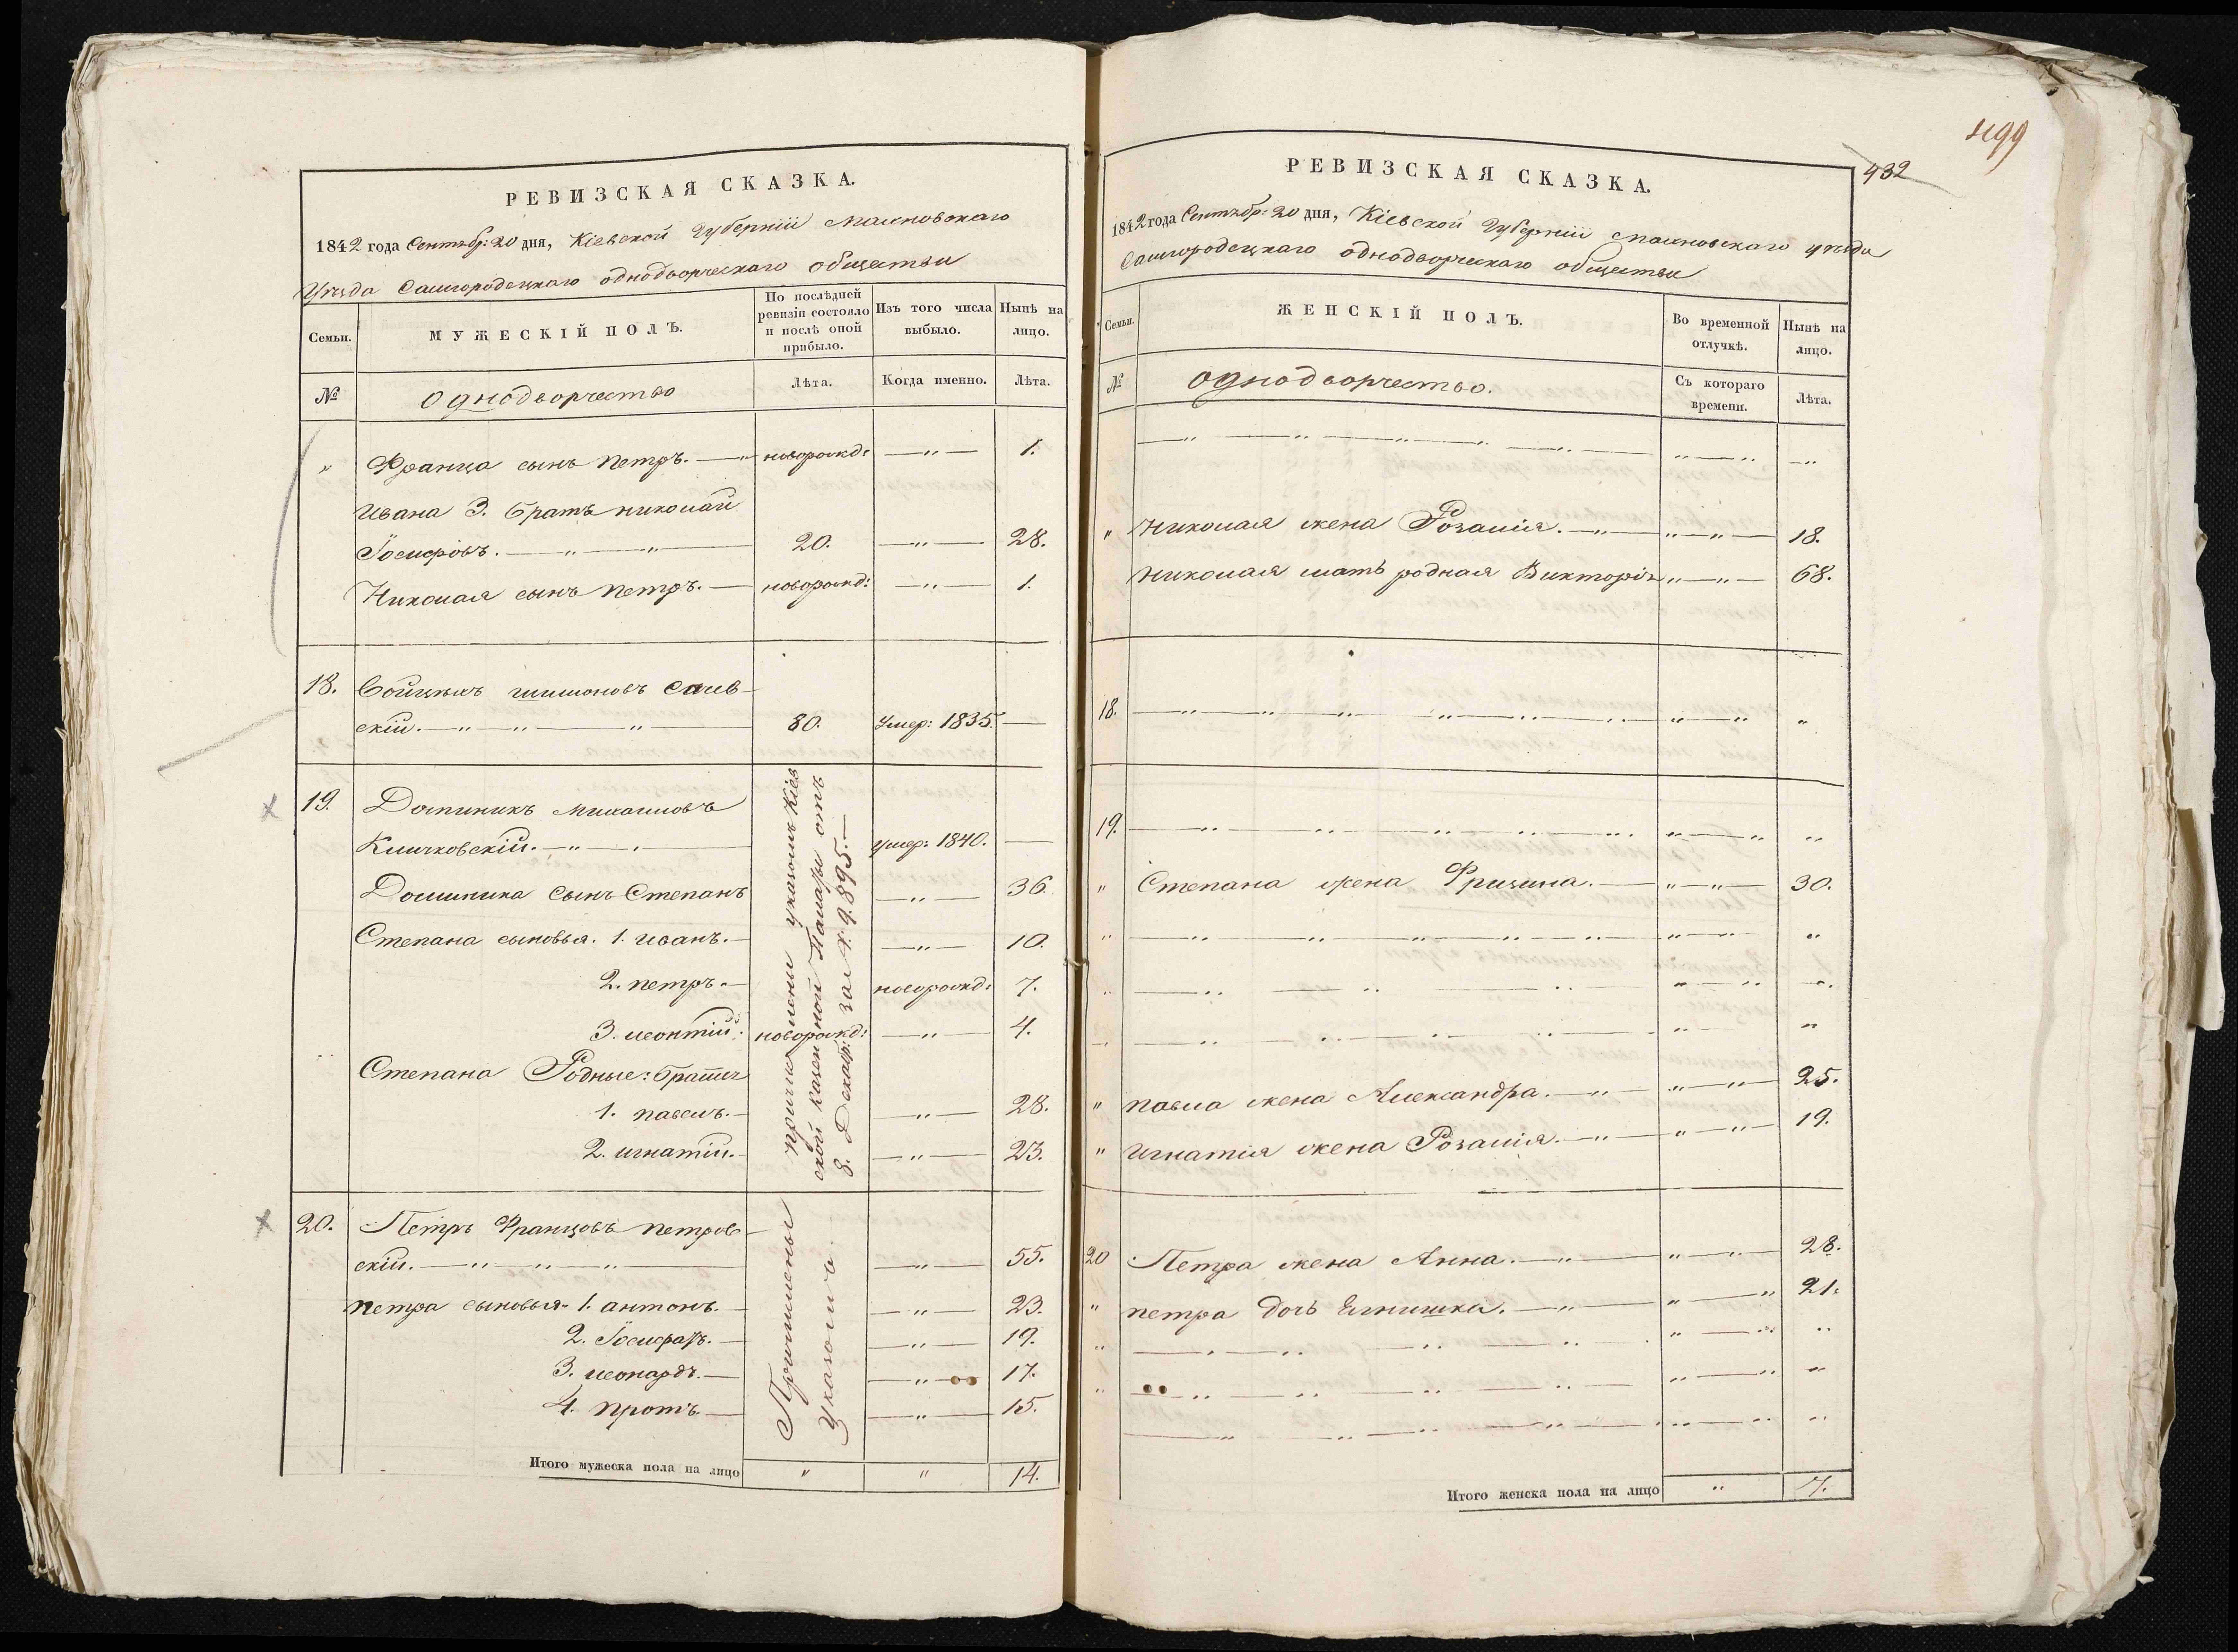 РЕВИЗСКАЯ СКАЗКА.
1842 года Сентябр: 20 дня, Кіевской Губерніи Махновскаго
Уѣзда Самгородецкаго однодворческаго общества
Семьи.
МУЖЕСКІЙ ПОЛЪ.
По послѣдней ревизіи состояло и послѣ оной прибыло.
Изъ того числа выбыло.
Нынѣ на лицо.
№
однодворчество
Лѣта.
Когда именно.
Лѣта.
„ Франца сынъ петръ. — новорожд: —„— 1.
Ивана 3. братъ николай
Іосифовъ. —„—„— 20. —„— 28.
Николая сынъ петръ. — новорожд: —„— 1.
18. Войцѣхъ шимоновъ
скій. —„—„—„— 80. Умер: 1835. —
19. Доминикъ михайловъ
Кличковскій. —„—„— умер: 1840. —
Доминика Сынъ Степанъ —„— 36.
Степана сыновья. 1. иванъ. — —„— 10.
2. петръ. — новорожд: 7.
3. леонтій. новорожд: —„— 4.
Степана Родные: братья
1. павелъ. — —„— 28.
2. игнатій. — —„— 23.
причислены указомъ Кіев
ской казенной Палаты отъ
8. Декабр: за № 9.895. —
20. Петръ Францовъ петров-
скій. —„—„—„— —„— 55.
петра сыновья. 1. антонъ. — —„— 23.
2. Іосифатъ. — —„— 19.
3. леонардъ. — —„— 17.
4. протъ. — —„— 15.
Причислены
Указомъ
Итого мужеска пола на лицо „ „ 14.
499
432
РЕВИЗСКАЯ СКАЗКА.
1842 года Сентябр: 20 дня, Кіевской Губерніи Махновскаго уѣзда
Самгородецкаго однодворческаго общества
Семьи.
ЖЕНСКІЙ ПОЛЪ.
Во временной отлучкѣ.
Нынѣ на лицо.
№
однодворчество.
Съ котораго времени.
Лѣта.
„ Николая жена Розалія. —„— „—„— 18.
Николая мать родная Викторія „—„— 68.
18. —„—„—„—„— „—„ „
19. —„—„—„—„— „—„ „
„ Степана жена — „—„— 30.
„ павла жена Александра. —„— „—„— 25.
„ Игнатія жена Розалія. —„— „—„— 19.
20 Петра жена Анна. —„— „—„— 28.
„ петра дочь —„— „—„ 21.
Итого женска пола на лицо „ 7.